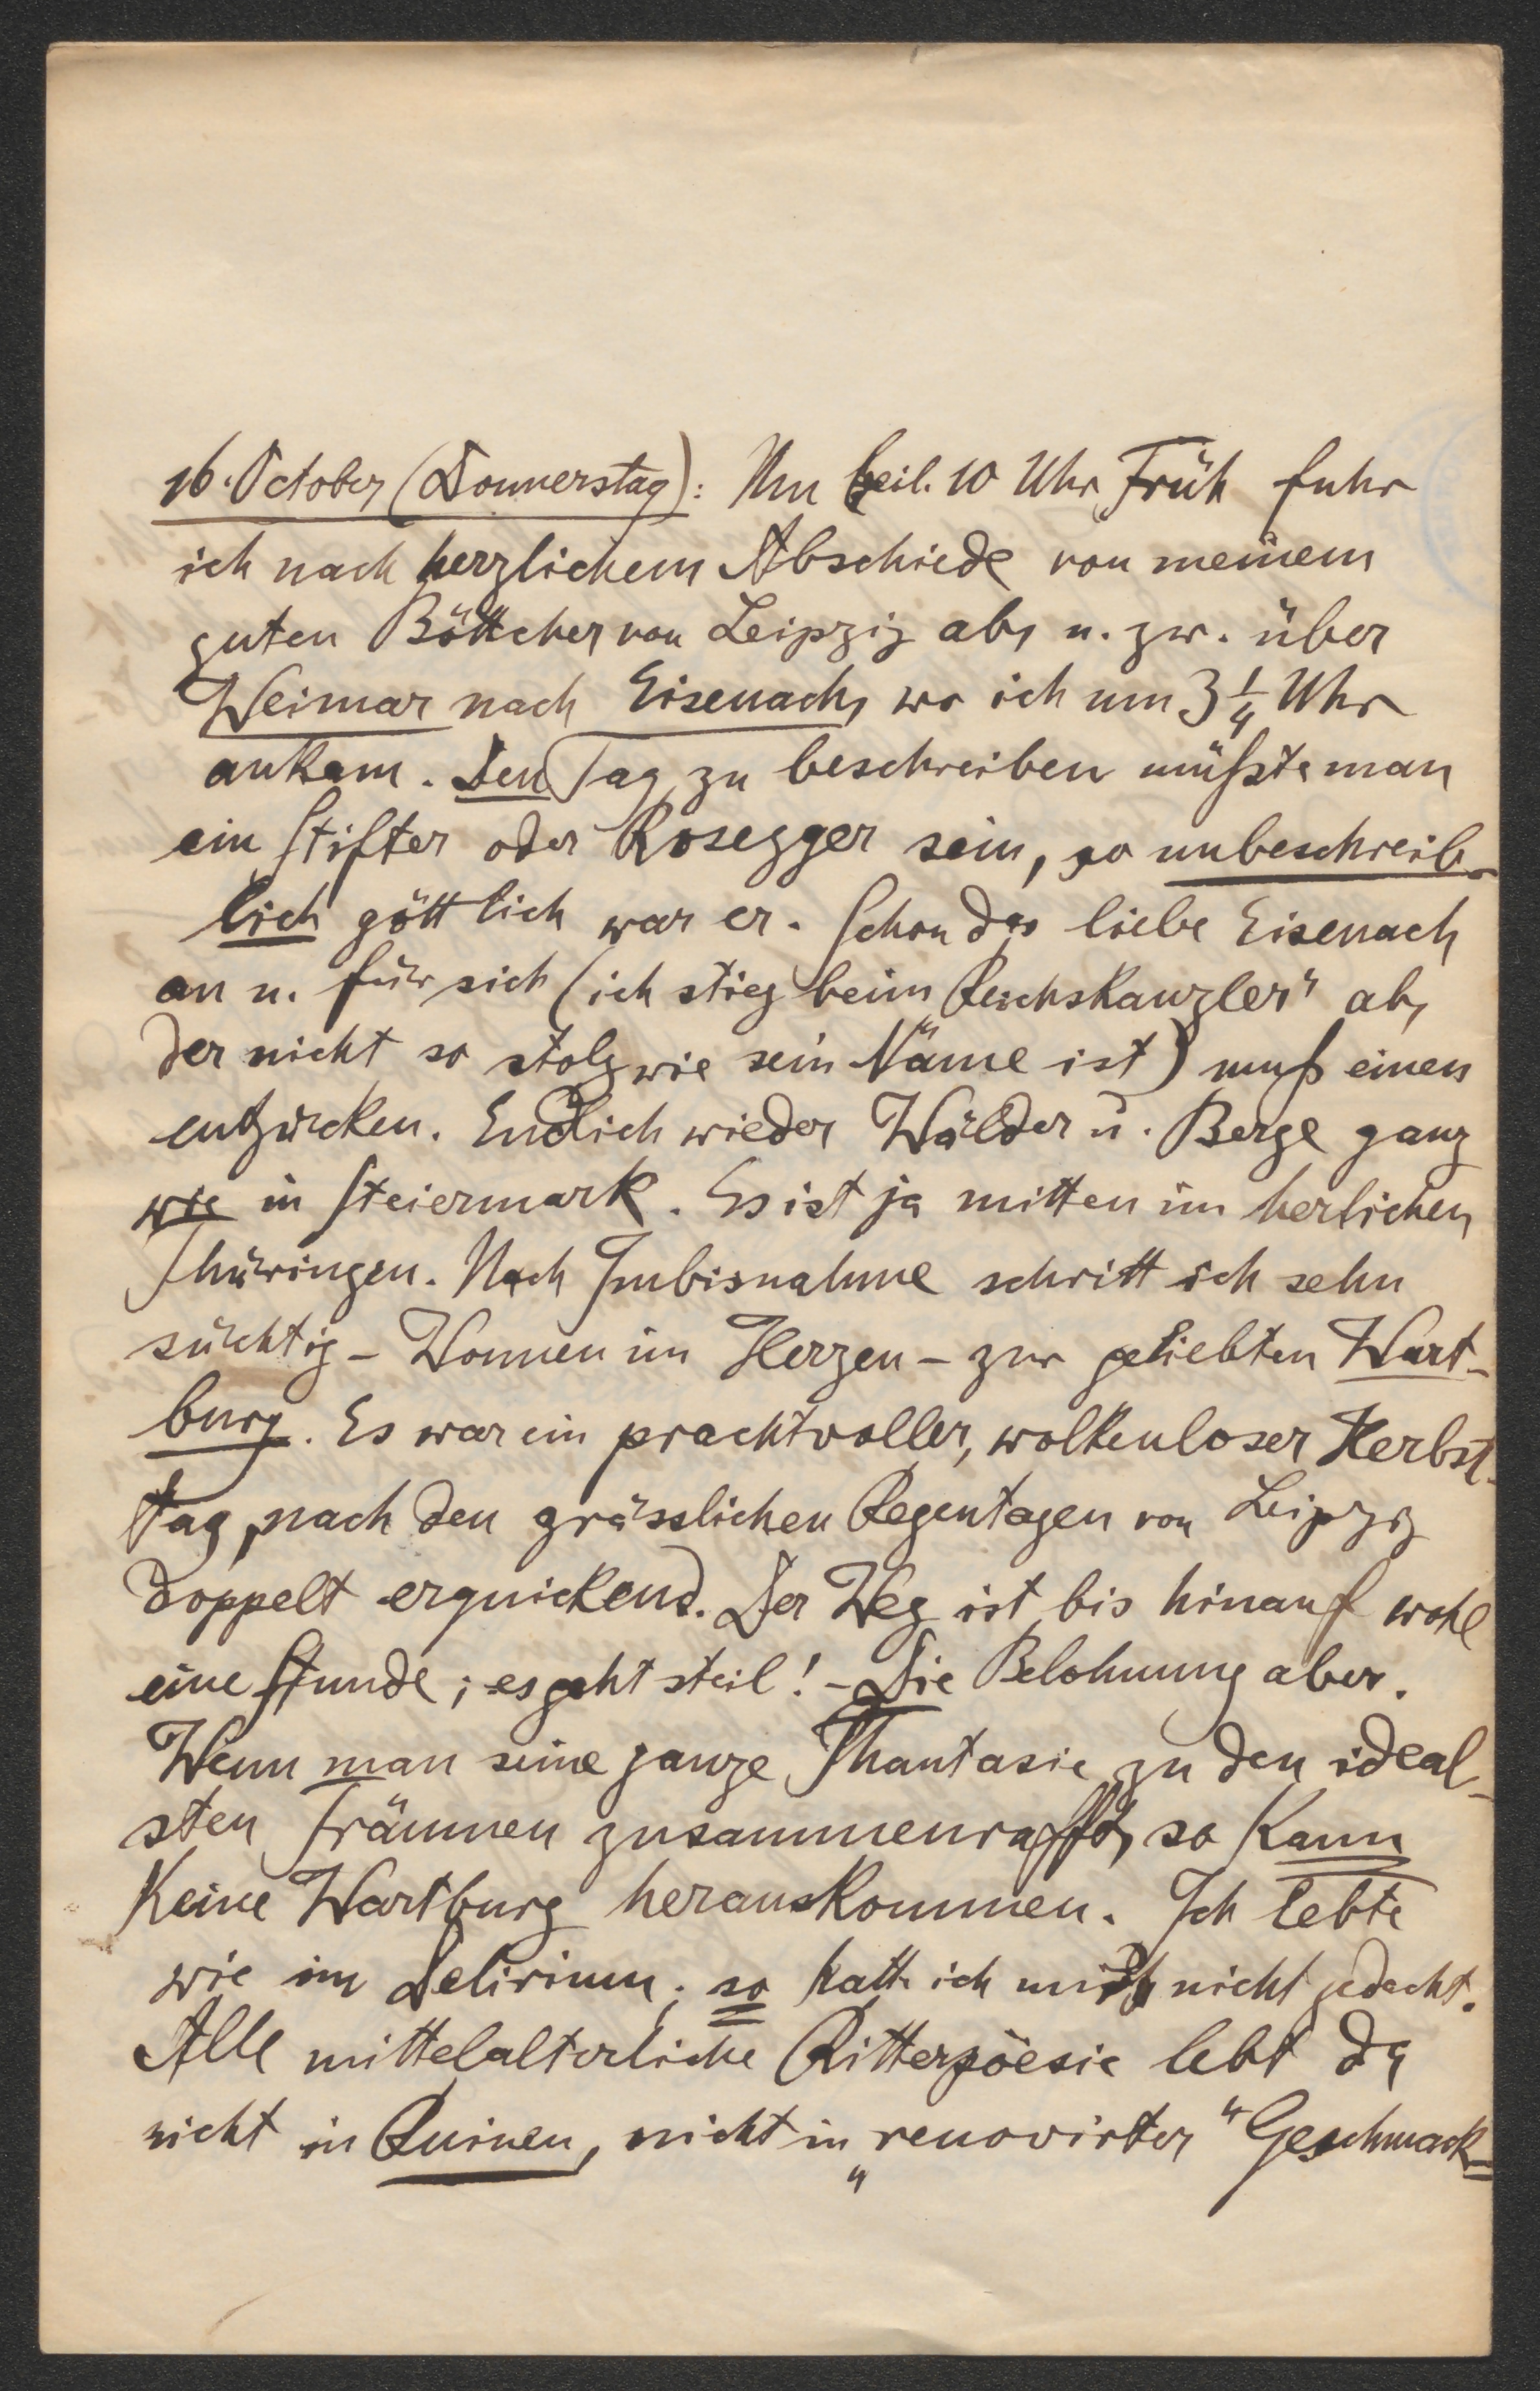 16. October (Donnerstag): Um beil. 10 Uhr Früh fuhr
ich nach herzlichem Abschiede von meinem
guten Böttcher von Leipzig ab, u. zw. über
Weimar nach Eisenach, wo ich um 3 1/4 Uhr
ankam. Den Tag zu beschreiben müßte man
ein Stifter oder Rosegger sein, so unbeschreib-
lich göttlich war er. Schon das liebe Eisenach
an u. für sich (ich stieg beim „Reichskanzler" ab,
der nicht so stolz wie sein Name ist) muß einen
entzücken. Endlich wieder Wälder u. Berge ganz
wie in Steiermark. Es ist ja mitten im herlichen
Thüringen. Nach Imbisnahme schritt ich sehn
süchtig – Wonnen im Herzen – zur geliebten Wart-
burg. Es war ein prachtvoller, wolkenloser Herbst-
tag, nach den grässlichen Regentagen von Leipzig
doppelt erquickend. Der Weg ist bis hinauf wohl
eine Stunde; es geht steil! – Die Belohnung aber.
Wenn man seine ganze Phantasie zu den ideal-
sten Träumen zusammenrafft, so kann
keine Wartburg herauskommen. Ich lebte
wie im Delirium; so hatt ich mirs nicht gedacht.
Alle mittelalterliche Ritterpoesie lebt da
nicht in Ruinen, nicht in „renovirter" Geschmack-